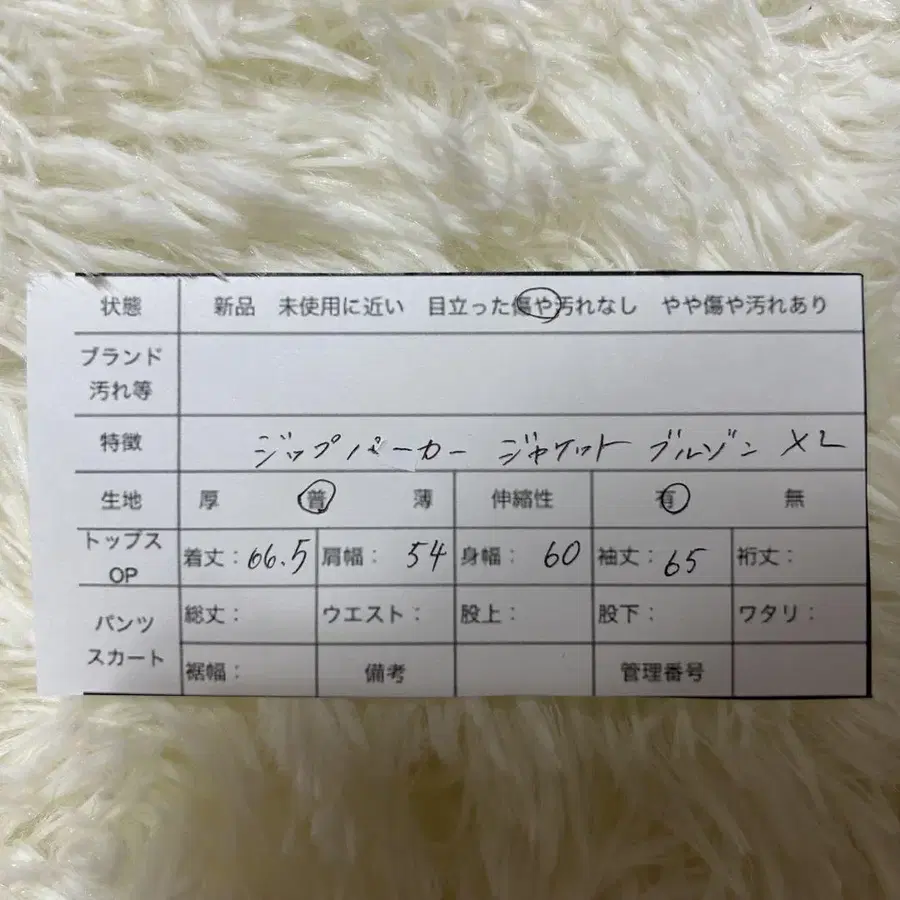 状態 新品 未使用に近い 目立った傷や汚れなし やや傷や汚れあり
ブランド
汚れ等
特徴 ジップパーカー ジャケット ブルゾン XL
生地 厚 普 薄 伸縮性 有 無
トップス
OP
着丈: 66.5 肩幅: 54 身幅: 60 袖丈: 65 裄丈:
パンツ
スカート
総丈: ウエスト: 股上: 股下: ワタリ:
裾幅: 備考 管理番号